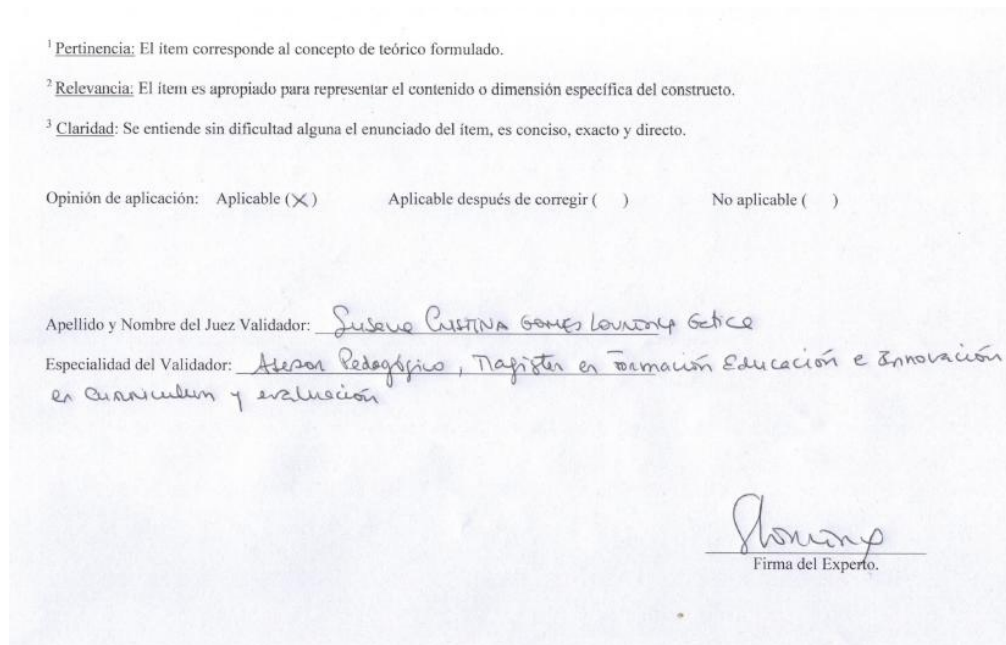 ¹ Pertinencia: El ítem corresponde al concepto de teórico formulado.
² Relevancia: El ítem es apropiado para representar el contenido o dimensión específica del constructo.
³ Claridad: Se entiende sin dificultad alguna el enunciado del ítem, es conciso, exacto y directo.
Opinión de aplicación: Aplicable (X) Aplicable después de corregir ( ) No aplicable ( )
Apellido y Nombre del Juez Validador: Susana Cristina Gomes
Especialidad del Validador: Asesor Pedagógico, Magister en Formación Educación e Innovación
en curriculum y evaluación
Firma del Experto.